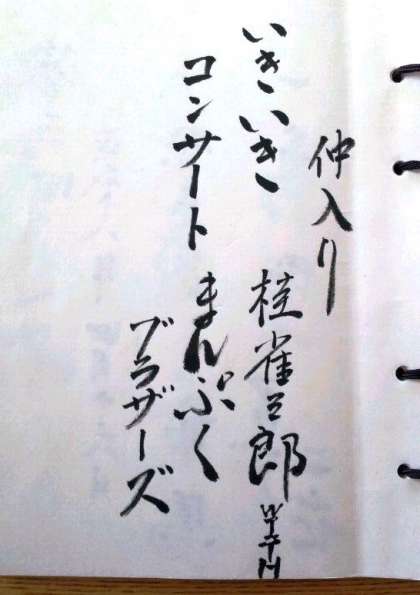 仲入り
いきいき 桂雀三郎 WITH
コンサート まんぷく
ブラザーズ